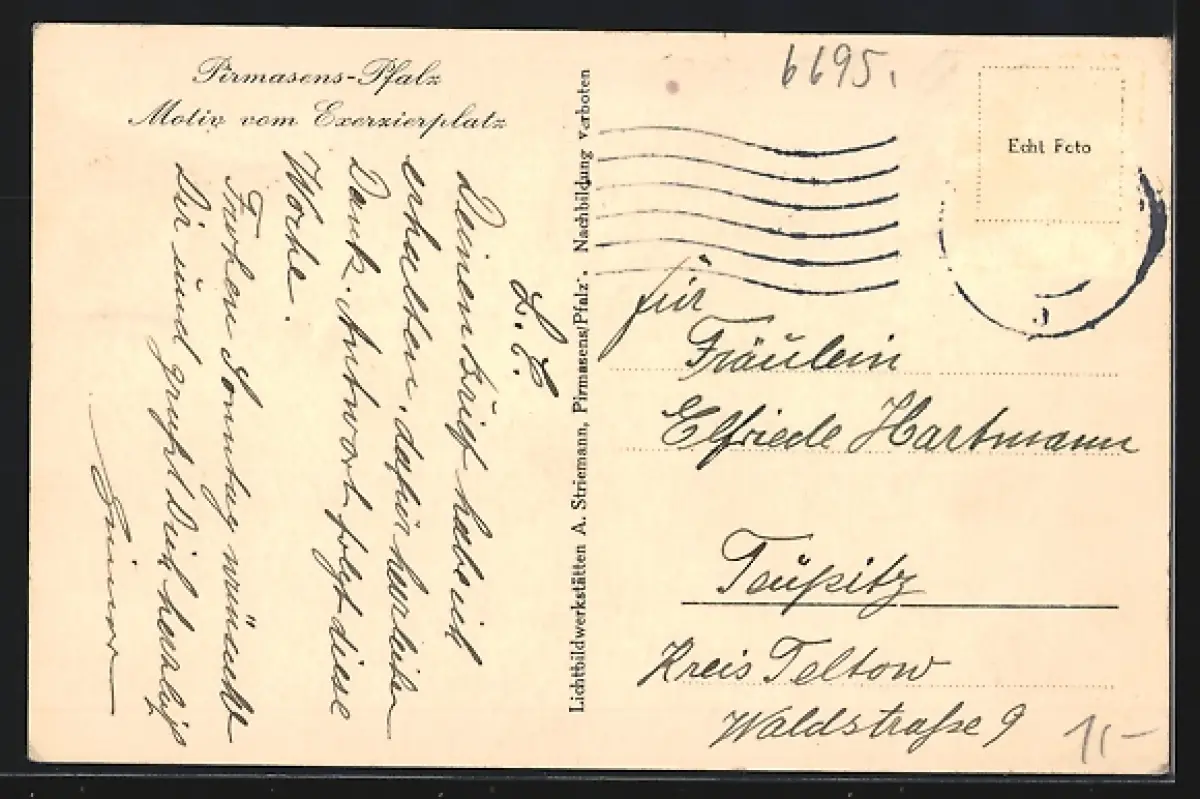 Pirmasens-Pfalz
Motiv vom Exerzierplatz
L. E.
Deinen Brief habe ich
erhalten, dafür herzlichen
Dank. Antwort folgt diese
Woche.
Frohen Sonntag wünscht
Dir und grüßt Dich herzlich
Lichtbildwerkstätten A. Striemann, Pirmasens/Pfalz. Nachbildung verboten
6695.
Echt Foto
für
Fräulein
Elfriede Hartmann
Teupitz
Kreis Teltow
Waldstraße 9
1,-